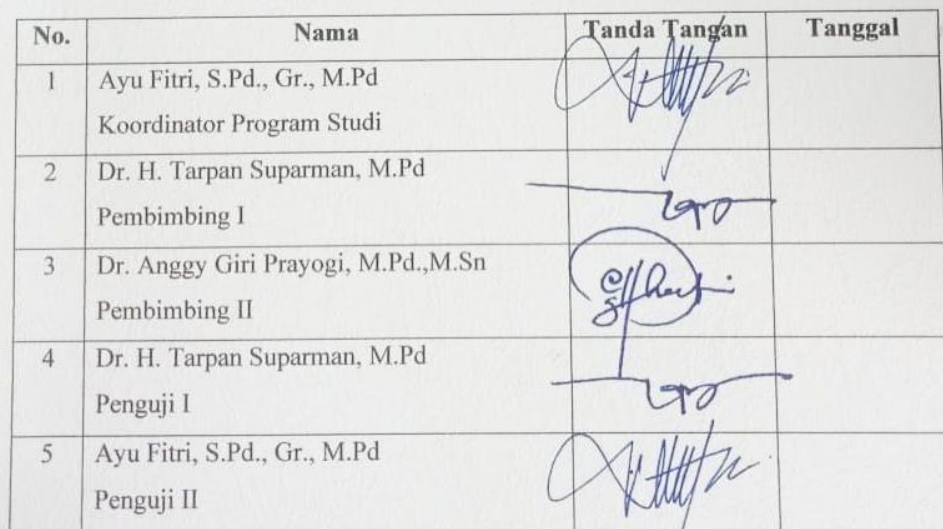 No. Nama Tanda Tangan Tanggal
1 Ayu Fitri, S.Pd., Gr., M.Pd
Koordinator Program Studi
2 Dr. H. Tarpan Suparman, M.Pd
Pembimbing I
3 Dr. Anggy Giri Prayogi, M.Pd.,M.Sn
Pembimbing II
4 Dr. H. Tarpan Suparman, M.Pd
Penguji I
5 Ayu Fitri, S.Pd., Gr., M.Pd
Penguji II